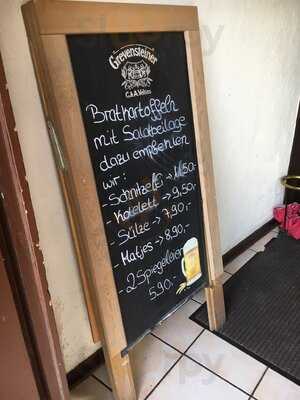 Grevensteiner
C.& A. Veltins
Bratkartoffeln
mit Salatbeilage
dazu empfehlen
wir:
- Schnitzel → 11,50-
- Kotelett → 9,50-
- Sülze → 7,90,-
- Matjes → 8,90,-
- 2 Spiegeleier
5,90,-